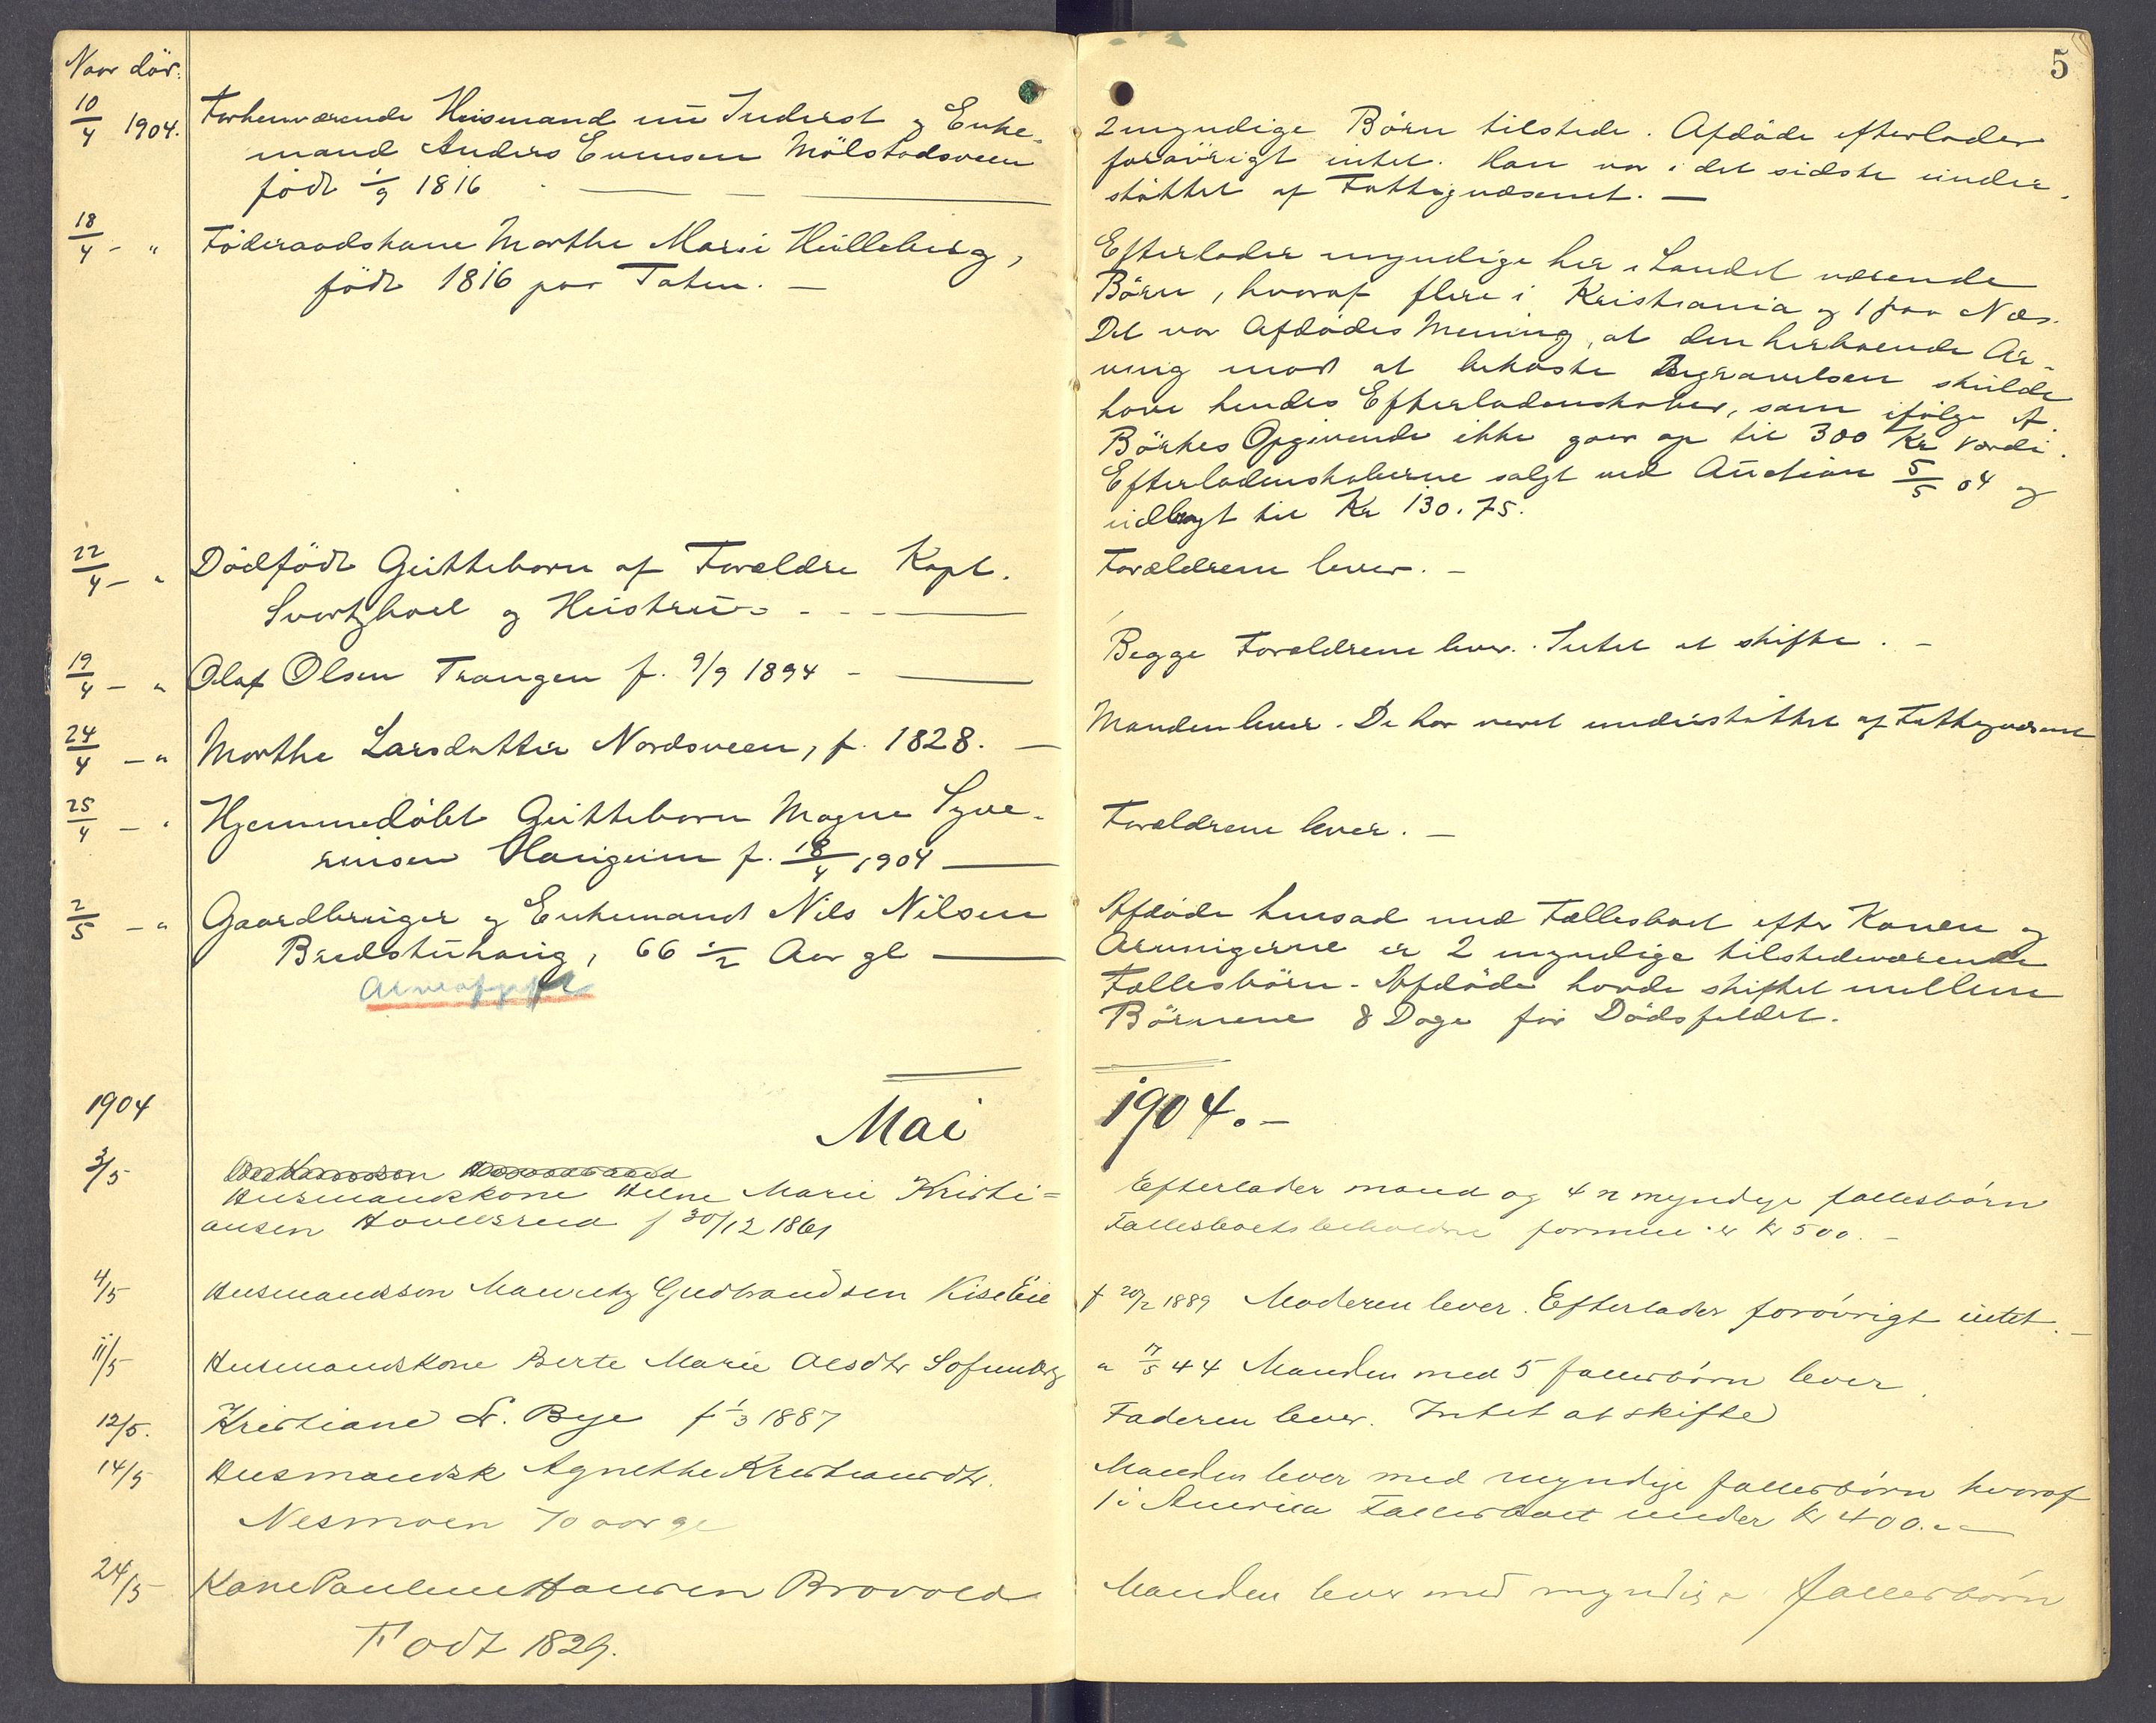 5
Naar död.
10/4 1904. Forhenværende Husmand nu Inderst og Enke-
mand Anders Evensen Mölstadsveen
född 1/9 1816 —
2 myndige Börn tilstede. Afdöde efterlader
forövrigt intet. Han var i det sidste under-
støttet af Fattigvæsenet. —
18/4 - " Föderaadskone Marthe Marie Hulleberg,
född 1816 paa Toten. —
Efterlader myndige her i Landet værende
Börn, hvoraf flere i Kristiania og 1 paa Næs.
Det var Afdödes Mening, at den herboende Ar-
ving mod at bekoste Begravelsen skulde
have hendes Efterladenskaber, som ifölge A.
Börkes Opgivende ikke gaar op til 300 Kr Værdi.
Efterladenskaberne solgt ved Auction 5/5 04 og
udbragt til Kr 130.75.
22/4 - " Dödfödt Guttebarn af Forældre Kapt.
Svartzhoel og Hustru -
Forældrene lever. —
19/4 - " Olaf Olsen Trangen f. 9/9 1894 -
Begge Forældrene lever. Intet at skifte. -
24/4 - " Marthe Larsdatter Nordsveen, f. 1828. —
Manden lever. De har været understøttet af Fattigvæsenet
25/4 - " Hjemmedöbt Guttebarn Magne Syve-
rinsen Haugeim f. 18/4 1904 —
Forældrene lever. —
2/5 - " Gaardbruger og Enkemand Nils Nilsen
Bredstuhaug, 66 1/2 Aar gl —
Arveafgift
Afdöde hensad med Fællesboet efter Konen og
Arvingerne er 2 myndige tilstedeværende
Fællesbörn - Afdöde havde skiftet mellem
Börnene 8 Dage för Dödsfaldet.
1904 Mai 1904. —
3/5 Husmandskone Helene Marie Kristi=
ansen Hovelsrud f 30/12 1861
Efterlader mand og 4 umyndige fællesbörn
Fællesboets beholdne formue er Kr 500. -
4/5 Husmandssön Mauritz Gudbrandsen Kise Eie
f 20/2 1889 Moderen lever. Efterlader forövrigt intet. -
11/5 Husmandskone Berte Marie Olsdtr
" 17/5 44 Manden med 5 fællesbörn lever.
12/5. Kristiane L. Bye f 1/3 1887
Faderen lever. Intet at skifte
14/5 Husmandsk Agnethe Kristiansdtr.
Nesmoen 70 aar gl
Manden lever med myndige fællesbörn hvoraf
1 i America Fællesboet under Kr 400. —
24/5 Kone Pauline Hansen Brovold
Född 1829.
Manden lever med myndige fællesbörn